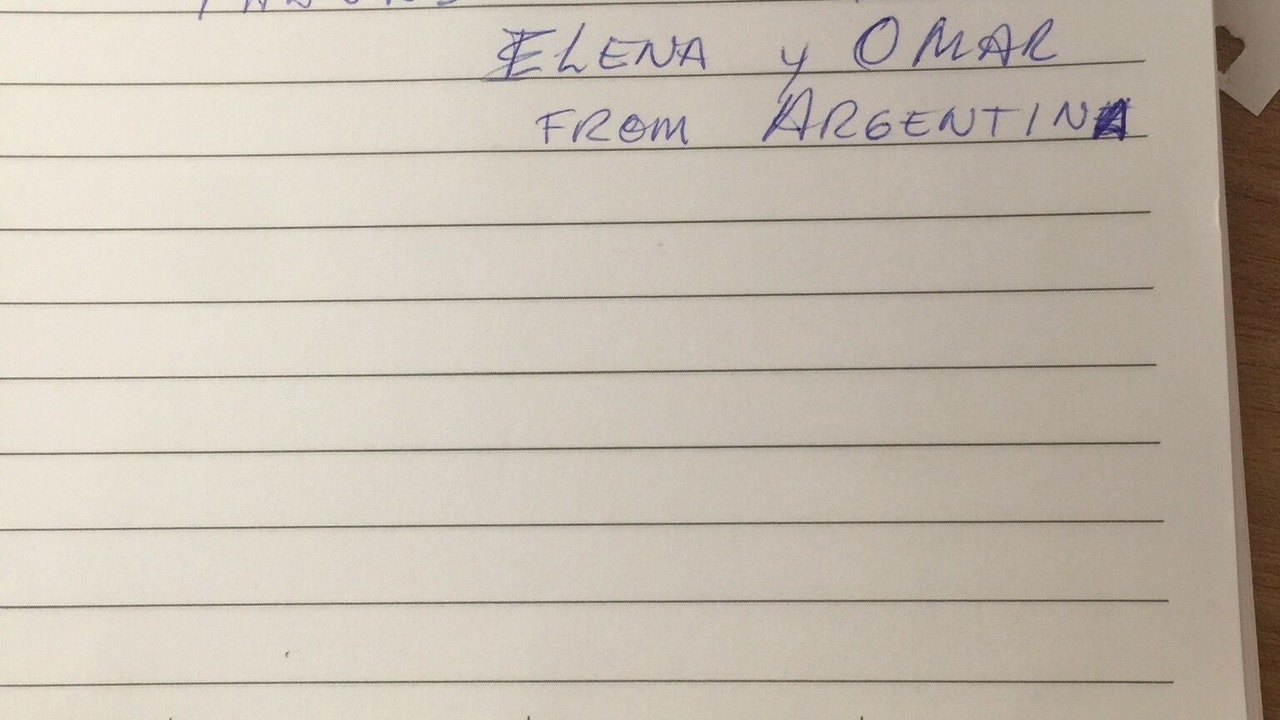 ELENA y OMAR
FROM ARGENTINA